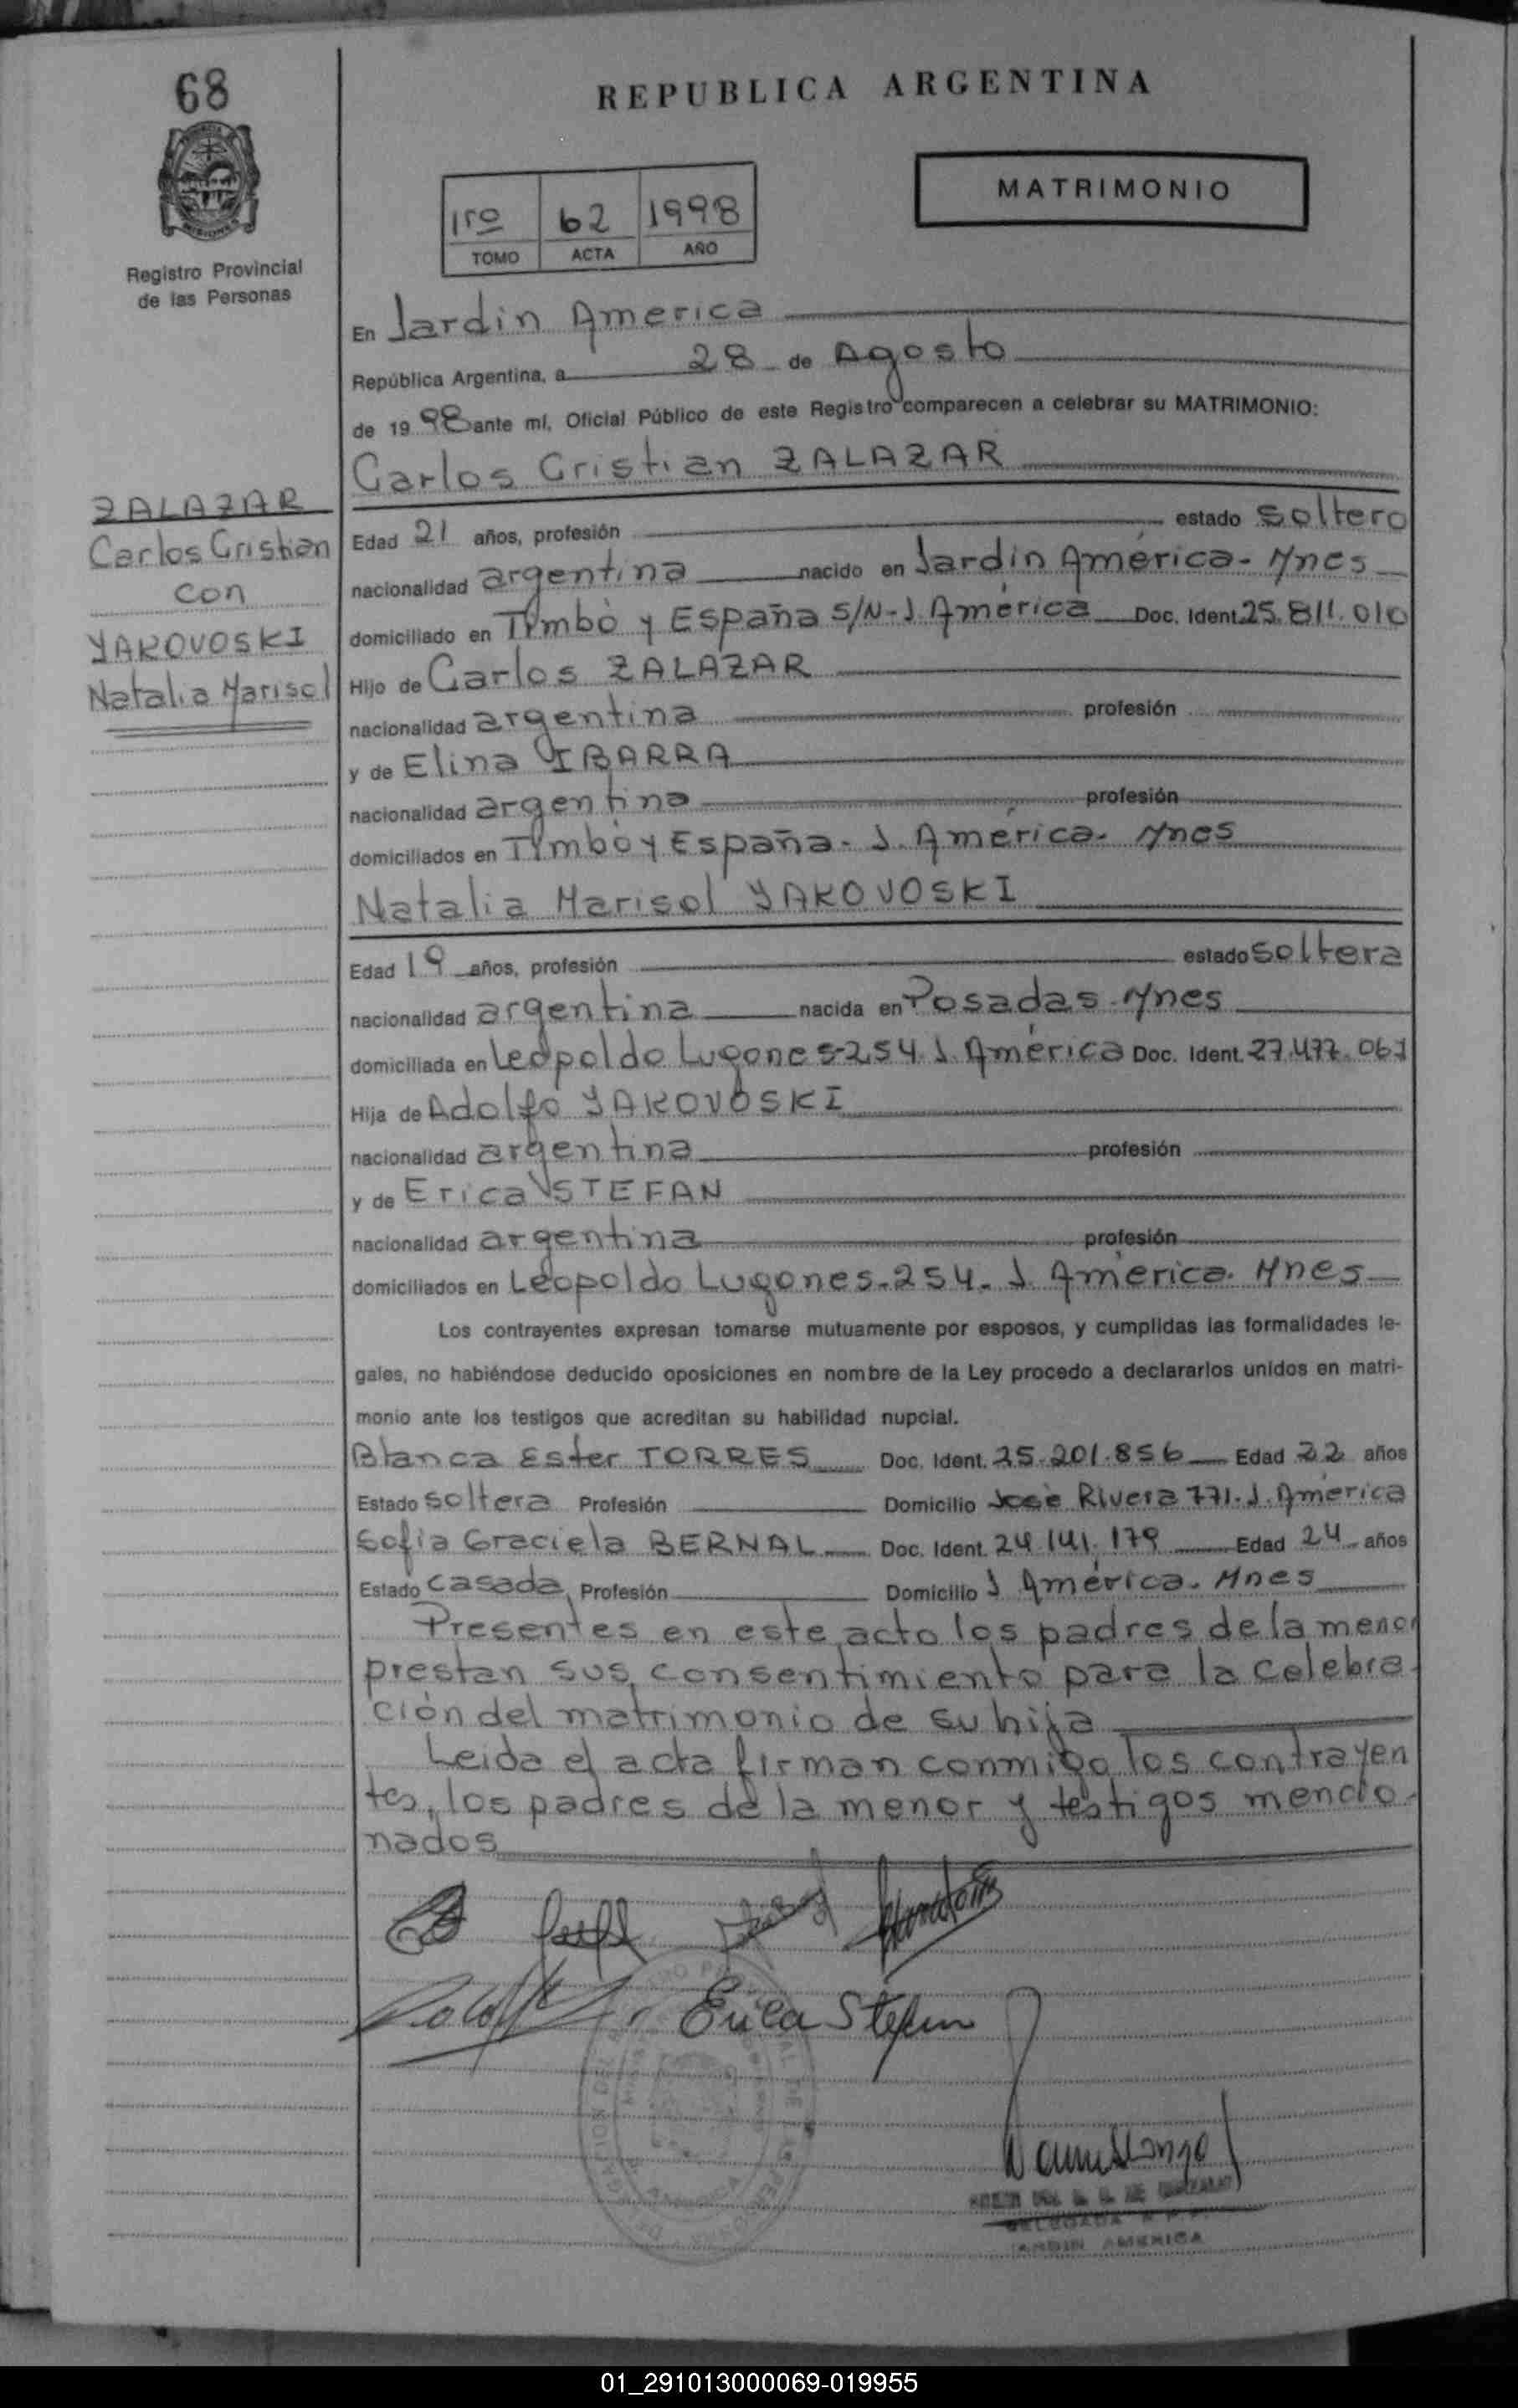 68
REPUBLICA ARGENTINA
MATRIMONIO
1ro 62 1998
TOMO ACTA AÑO
MISIONES
Registro Provincial
de las Personas
En Jardin America
República Argentina, a 28 de Agosto
de 1998 ante mí, Oficial Público de este Registro comparecen a celebrar su MATRIMONIO:
Carlos Cristian ZALAZAR
ZALAZAR
Carlos Cristian
con
YAKOVOSKI
Natalia Marisol
Edad 21 años, profesión estado soltero
nacionalidad argentina nacido en Jardin América - Mnes
domiciliado en Tymbó y España S/N - J. América Doc. Ident. 25.811.010
Hijo de Carlos ZALAZAR
nacionalidad argentina profesión
y de Elina IBARRA
nacionalidad argentina profesión
domiciliados en Tymbó y España - J. América - Mnes
Natalia Marisol YAKOVOSKI
Edad 19 años, profesión estado soltera
nacionalidad argentina nacida en Posadas - Mnes
domiciliada en Leopoldo Lugones - 254 J. América Doc. Ident. 27.477.061
Hija de Adolfo YAKOVOSKI
nacionalidad argentina profesión
y de Erica STEFAN
nacionalidad argentina profesión
domiciliados en Leopoldo Lugones - 254 - J. América - Mnes
Los contrayentes expresan tomarse mutuamente por esposos, y cumplidas las formalidades le-
gales, no habiéndose deducido oposiciones en nombre de la Ley procedo a declararlos unidos en matri-
monio ante los testigos que acreditan su habilidad nupcial.
Blanca Ester TORRES Doc. Ident. 25.201.856 Edad 22 años
Estado soltera Profesión Domicilio José Rivera 771 - J. América
Sofia Graciela BERNAL Doc. Ident. 24.141.179 Edad 24 años
Estado casada Profesión Domicilio J América - Mnes
Presentes en este acto los padres de la menor
prestan sus consentimiento para la celebra-
ción del matrimonio de su hija
Leida el acta firman conmigo los contrayen
tes, los padres de la menor y testigos mencio-
nados
Erica Stefan
JARDIN AMERICA
01_291013000069-019955